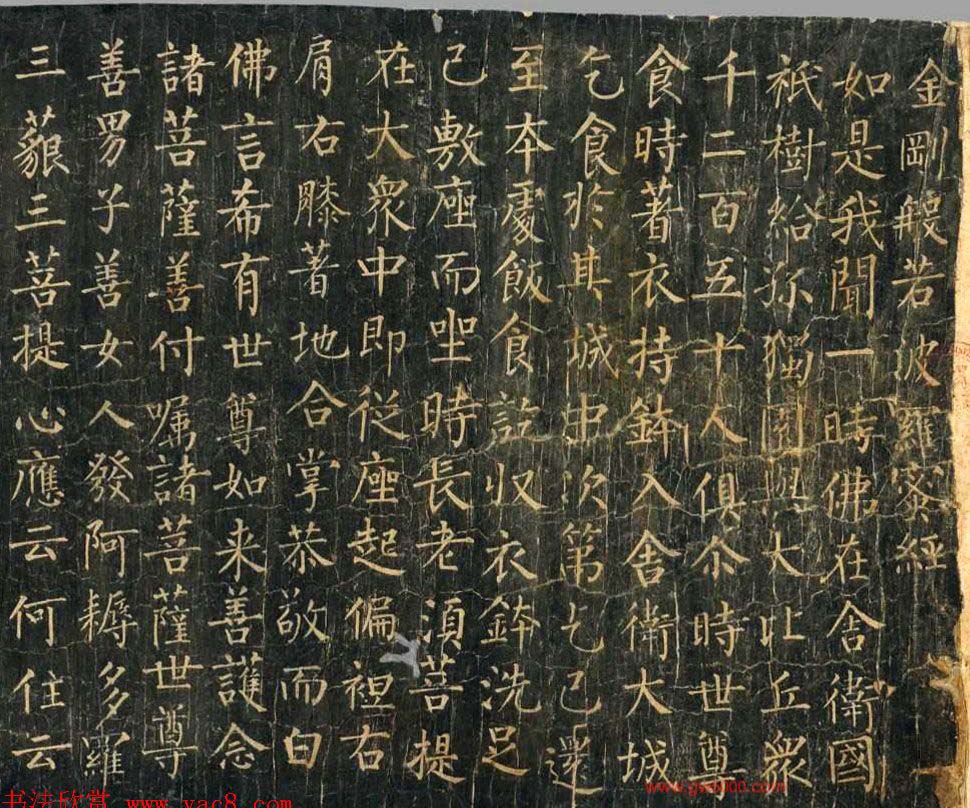 金剛般若波羅蜜經
如是我聞一時佛在舍衛國
祇樹給孤獨園與大比丘衆
千二百五十人俱尒時世尊
食時著衣持鉢入舍衛大城
乞食於其城中次第乞已還
至本處飯食訖収衣鉢洗足
已敷座而坐時長老須菩提
在大衆中即從座起偏袒右
肩右膝著地合掌恭敬而白
佛言希有世尊如来善護念
諸菩薩善付嘱諸菩薩世尊
善男子善女人發阿耨多羅
三藐三菩提心應云何住云
书法欣赏 www.yac8.com